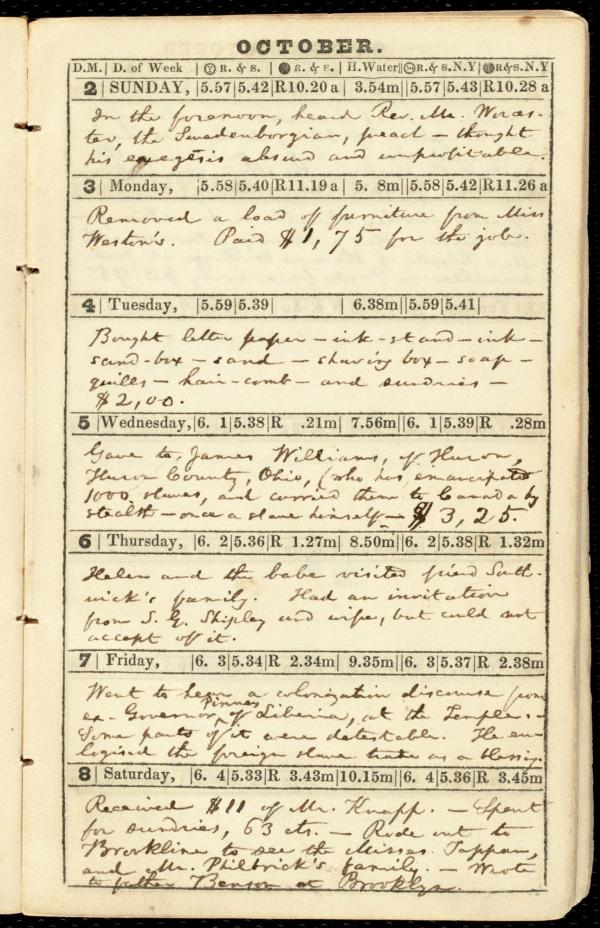 OCTOBER.
D.M.| D. of Week | R. & S. | R. & S. | H.Water|| R.& S.N.Y| R&S.N.Y
2 | SUNDAY, |5.57|5.42|R10.20 a| 3.54m||5.57|5.43|R10.28 a
In the forenoon, heard Rev. Mr. Worces-
ter, the Swedenborgian, preach – thought
his exegesis absurd and unprofitable.
3 | Monday, |5.58|5.40|R11.19 a| 5. 8m||5.58|5.42|R11.26 a
Removed a load of furniture from Miss
Weston's. Paid $1,75 for the job.
4 | Tuesday, |5.59|5.39| | 6.38m||5.59|5.41|
Bought letter paper – ink-stand – ink –
sand-box – sand – shaving box – soap –
quills – hair-comb – and sundries –
$2,00.
5 |Wednesday,|6. 1|5.38|R .21m| 7.56m||6. 1|5.39|R .28m
Gave to James Williams, of Huron,
Huron County, Ohio, (who has emancipated
1000 slaves, and carried them to Canada by
stealth – once a slave himself – $3,25.
6 | Thursday, |6. 2|5.36|R 1.27m| 8.50m||6. 2|5.38|R 1.32m
Helen and the babe visited friend South-
wick's family. Had an invitation
from S. G. Shipley and wife, but could not
accept of it.
7 | Friday, |6. 3|5.34|R 2.34m| 9.35m||6. 3|5.37|R 2.38m
Went to hear a colonization discourse from
ex-Governor Pinney of Liberia, at the Temple. –
Some parts of it were detestable. He eu-
logised the foreign slave trade as a blessing.
8 | Saturday, |6. 4|5.33|R 3.43m|10.15m||6. 4|5.36|R 3.45m
Received $11 of Mr. Knapp. – Spent
for sundries, 63 cts. – Rode out to
Brookline to see the Misses Tappan,
and Mr. Philbrick's family. – Wrote
to father Benson at Brooklyn.